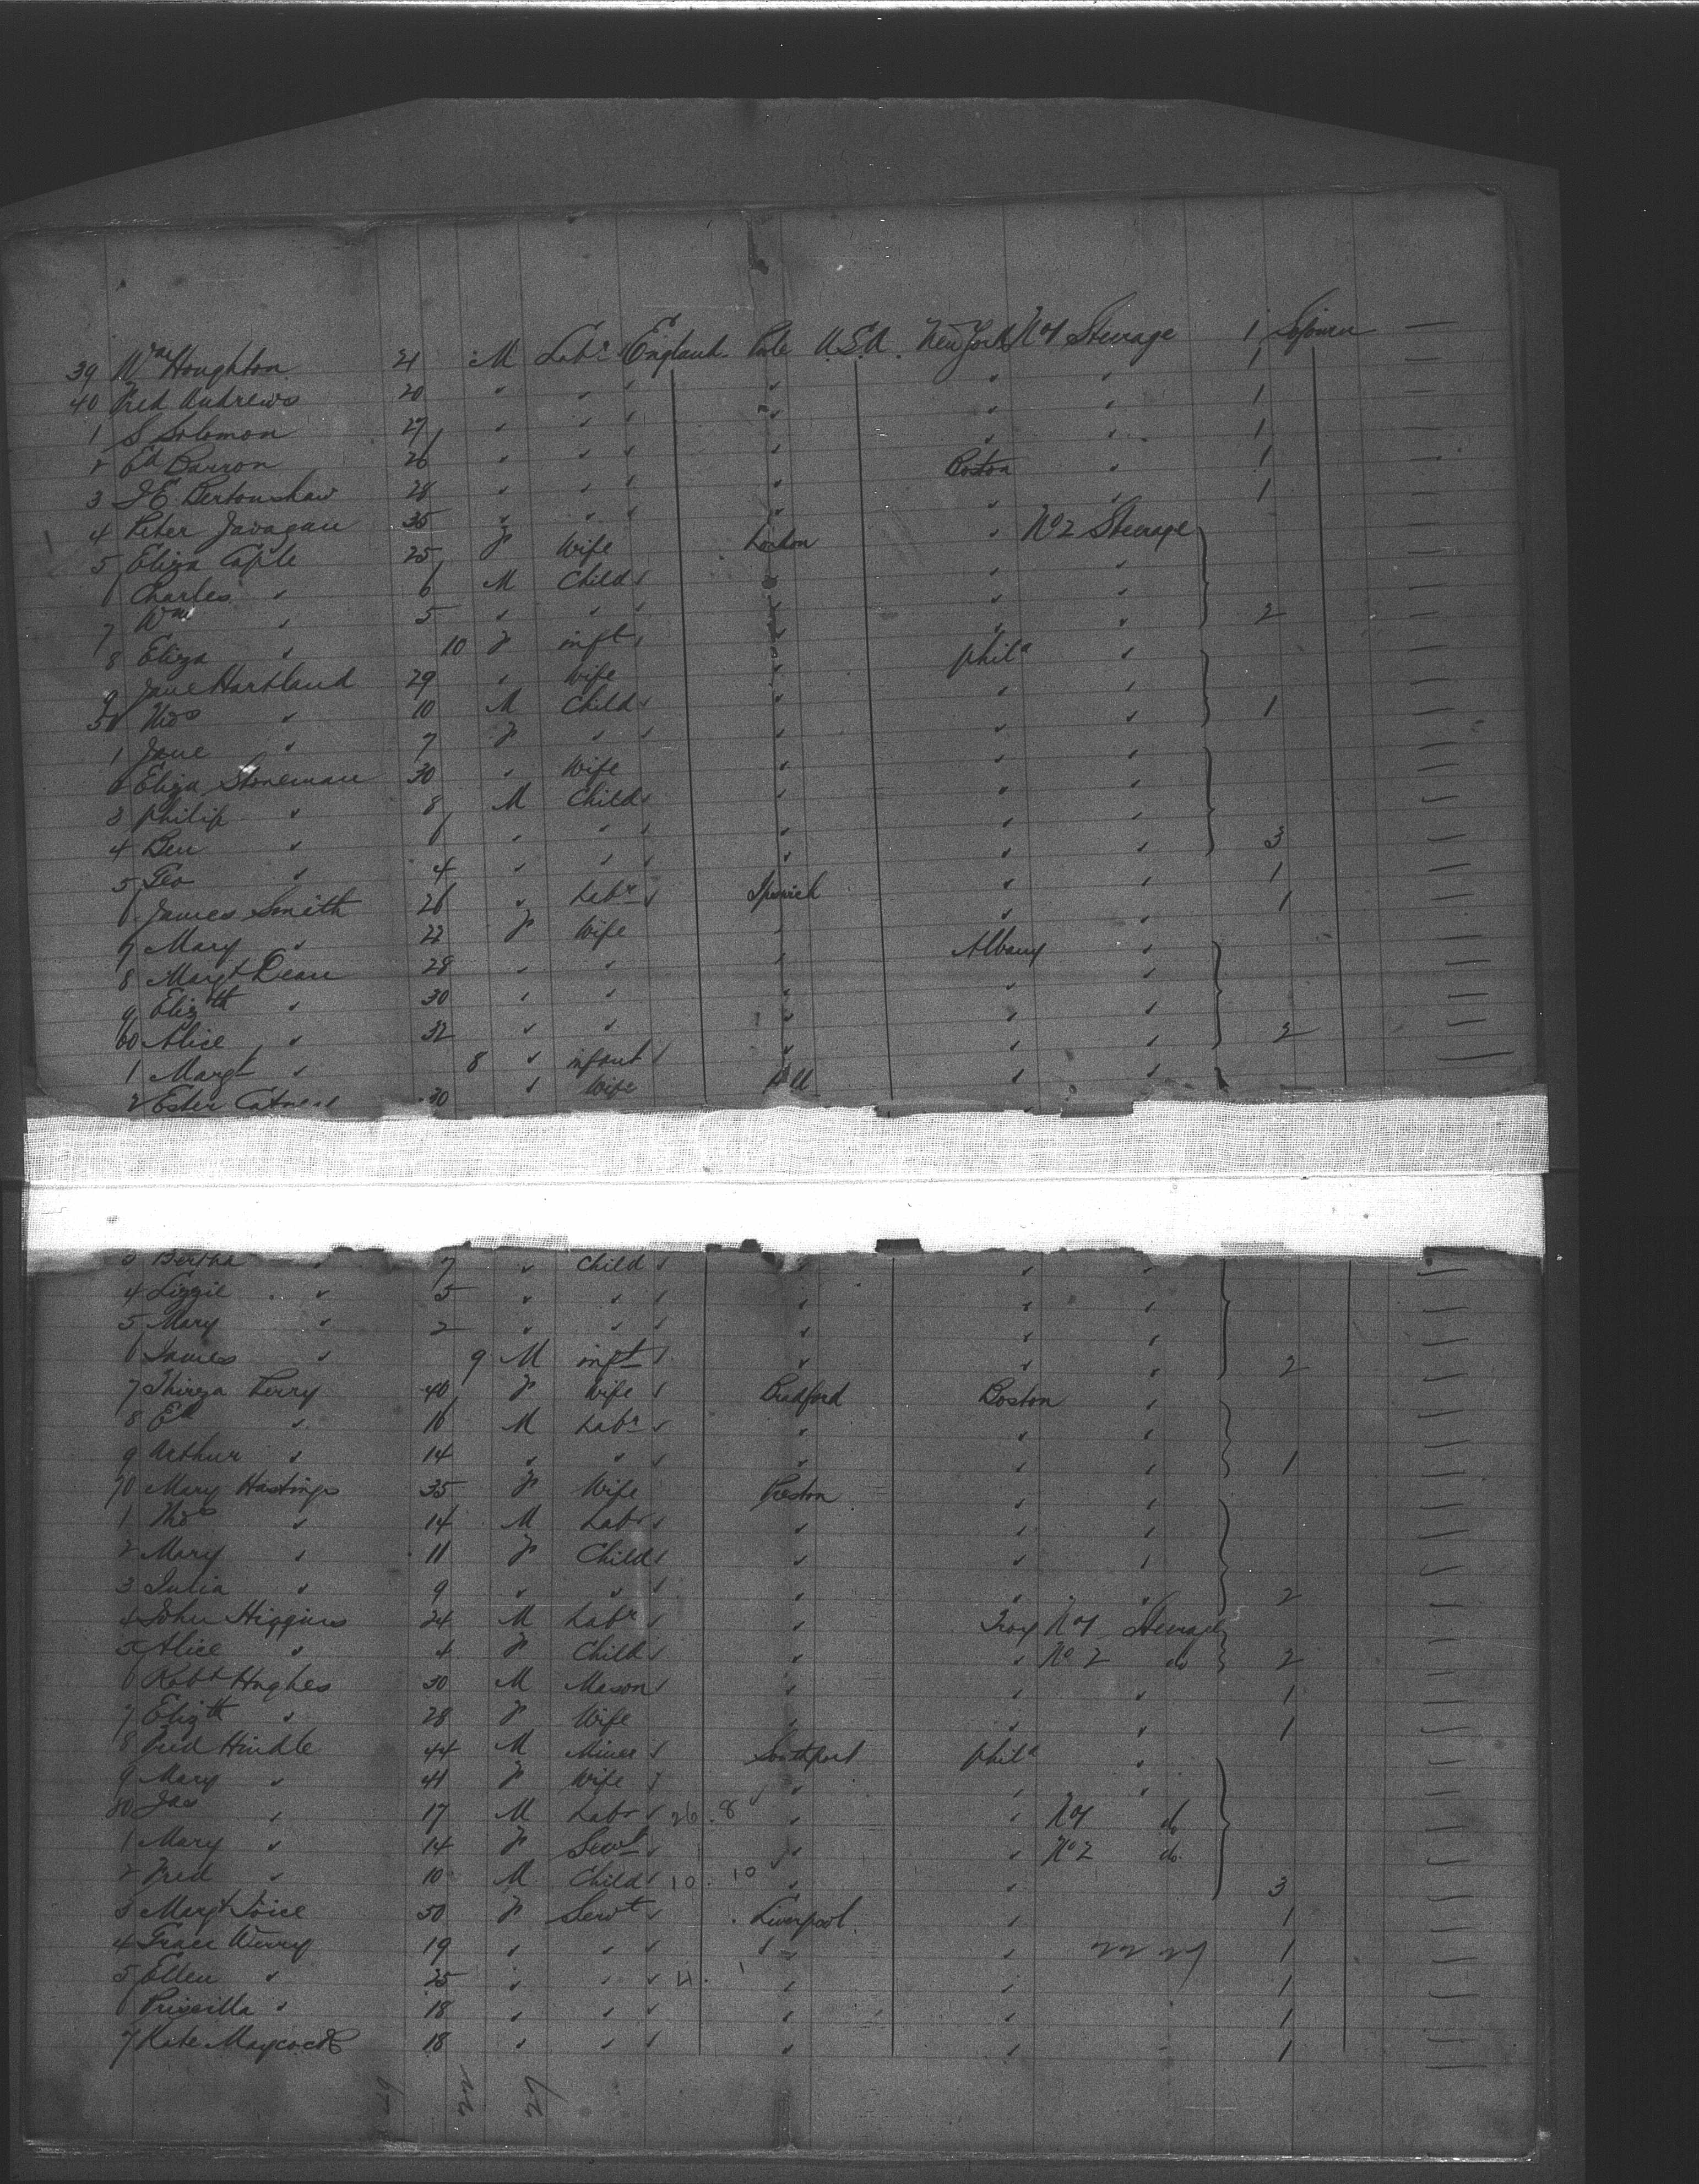 39 Wm Houghton 21 M Labr England U.S.A. New York No 1 Steerage 1 Sojourn —
40 Fred Andrews 20 " " " " " " 1
1 S Solomon 27 " " " " " " 1
2 Ed Barron 26 " " " " " " 1
3 28 " " " " Boston " 1
4 Peter 35 " " " " " " 1
5 Eliza Caple 25 F Wife London " No 2 Steerage
6 Charles " 6 M Child " " " "
7 Wm " 5 " " " " " "
8 Eliza " 10 F inft " " " " 2
9 Jane Hartland 29 " Wife " Phila "
50 Thos " 10 M Child " " " "
1 Jane " 7 F " " " " " 1
2 Eliza Stoneman 30 " Wife " " "
3 Philip " 8 M Child " " " "
4 Ben " 6 " " " " " "
5 Geo " 4 " " " " " " 3
6 James Smith 26 " Labr " Ipswich " " 1
7 Mary " 22 F Wife " " " 1
8 Margt Dean 28 " " " Albany "
9 Elizth " 30 " " " " "
60 Alice " 32 " " " " "
1 Margt " 8 " infant " " " " 2
2 Ester 30 " Wife Hull " "
3 Bertha " 7 " Child " " " "
4 Lizzie " 5 " " " " " "
5 Mary " 2 " " " " " "
6 James " 9 M inft " " " " 2
7 Thirza Perry 40 F Wife " Bradford Boston "
8 Ed " 16 M Labr " " " "
9 Arthur " 14 " " " " " " 1
70 Mary Hastings 35 F Wife Preston " "
1 Thos " 14 M Labr " " " "
2 Mary " 11 F Child " " " "
3 Julia " 9 " " " " " " 2
4 John Higgins 24 M Labr " " Troy No 1 Steerage
5 Alice " 4 F Child " " " No 2 do 2
6 Robt Hughes 30 M Mason " " " " 1
7 Elizth " 28 F Wife " " " 1
8 Fred Hindle 44 M Miner " Southport Phila "
9 Mary " 41 F Wife " " " "
80 Jas " 17 M Labr " 26.8 " " No 1 do
1 Mary " 14 F Servt " " " No 2 do
2 Fred " 10 M Child " 10.10 " " 3
3 Margt 50 F Servt " Liverpool " 1
4 Grace 19 " " " " " 1
5 Ellen " 25 " " " 4.1 " " 1
6 Priscilla " 18 " " " " " 1
7 Kate Maycock 18 " " " " " 1